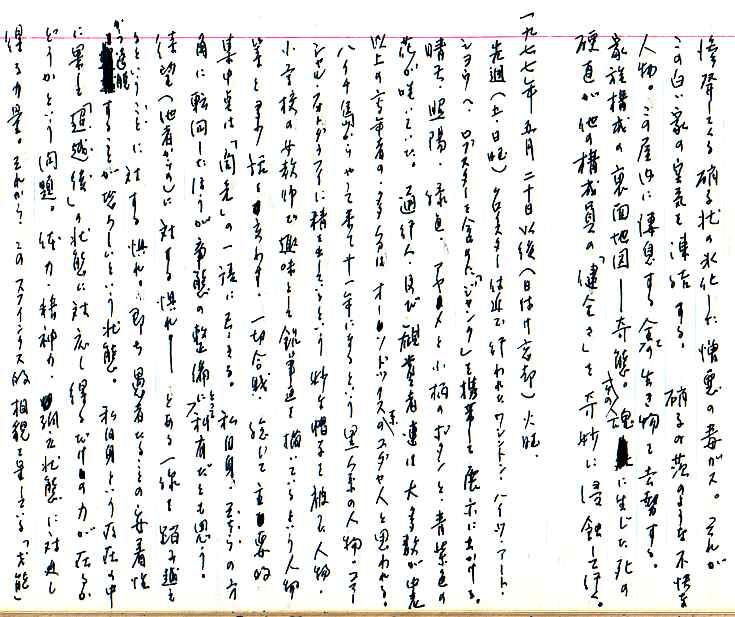 惨奔してくる硝子状の氷化した憎悪の毒ガス。それが
この白い家の空気を凍結する。硝子の茨のような不快な
人物。この屋内に溥息する全ての生き物を去勢する。
家族構成の裏面地図──奇態。その魂に生じた死の
硬直が他の構成員の「健全さ」を奇妙に浸蝕して行く。
一九七七年五月二十日以後(日付け忘却)火曜。
先週(土・日曜)クロイスター付近で行われたワシントン・ハイツ・アート・
ショウへ、ロブスターを含めた「ジャンク」を携帯して展示に出かける。
晴天、照陽、緑色、アヤメと小柄のボタンと、青紫色の
花が咲いていた。通行人、及び観賞者連は大多数が中老
以上の高年者の、多くはオーソドックス系のユダヤ人と思われる。
ハイチ島からやって来て十一年になるという黒人系の人物。ファー
シャル・フォトグラファイに精を出しているという妙な帽子を被った人物・
小学校の女教師で趣味として鉛筆画を描いているという人物
等と多少話を交わす。一切合財、総じて主要的
集中点は「関先」の一語に尽きる。私自身、そちらの方
角に転回したほうが章態の整備にとって利有だとも思う。
待望(他者からの)に対する惧れ。──とある一線を踏み越え
るということに対する惧れ。即ち愚者となることの安着性
かつ逸脱することが恐ろしいという状態。私自身という存在の中
に異る「追越後」の状態に対応し得るだけの力が在るか
どうかという問題。体力・精神力、孤立状態に対処し
得る力量。それから、このスフィンクス的相貌を呈している「才能」